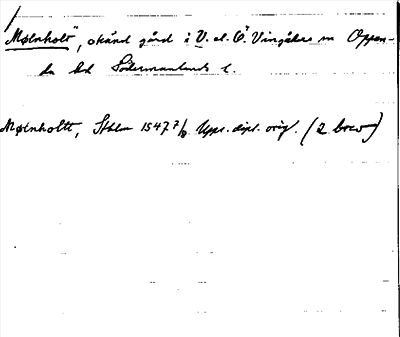 "Mølnholt", okänd gård i V. el. Ö. Vingåkers sn Oppun-
da hd Södermanlands l.
Mølnholtt, Sthlm 1547 7/8 Upps. dipl. orig. (2 brev)